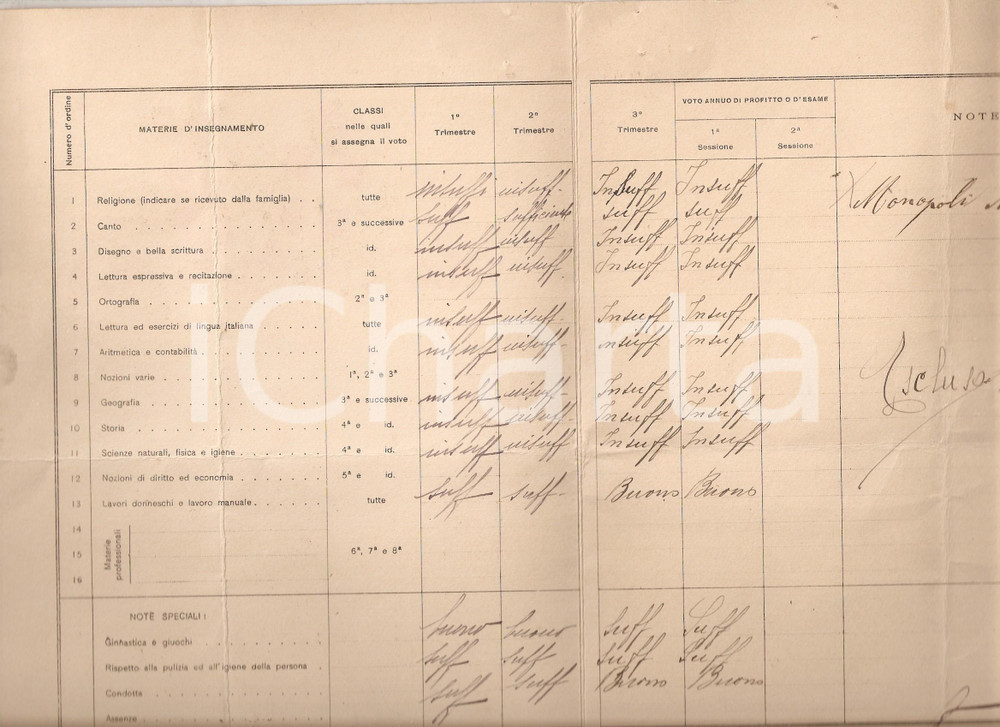 VOTO ANNUO DI PROFITTO O D'ESAME
Numero d'ordine MATERIE D'INSEGNAMENTO CLASSI nelle quali si assegna il voto 1º Trimestre 2º Trimestre 3º Trimestre 1ª Sessione 2ª Sessione NOTE
1 Religione (indicare se ricevuto dalla famiglia) . . tutte insuff insuff Insuff Insuff Monopoli
2 Canto 3ª e successive suff sufficiente suff suff
3 Disegno e bella scrittura id. insuff insuff Insuff Insuff
4 Lettura espressiva e recitazione id. insuff insuff Insuff Insuff
5 Ortografia 2ª e 3ª
6 Lettura ed esercizi di lingua italiana tutte insuff insuff Insuff Insuff
7 Aritmetica e contabilità id. insuff insuff insuff Insuff
8 Nozioni varie 1ª, 2ª e 3ª Esclusa
9 Geografia 3ª e successive insuff insuff Insuff Insuff
10 Storia 4ª e id. insuff insuff Insuff Insuff
11 Scienze naturali, fisica e igiene 4ª e id. insuff insuff Insuff Insuff
12 Nozioni di diritto ed economia 5ª e id.
13 Lavori donneschi e lavoro manuale tutte suff suff Buono Buono
14
15 Materie professionali 6ª, 7ª e 8ª
16
NOTE SPECIALI:
Ginnastica e giuochi buono buono Suff Suff
Rispetto alla pulizia ed all'igiene della persona . suff suff Suff Suff
Condotta suff suff Buono Buono
Assenze
iCharta